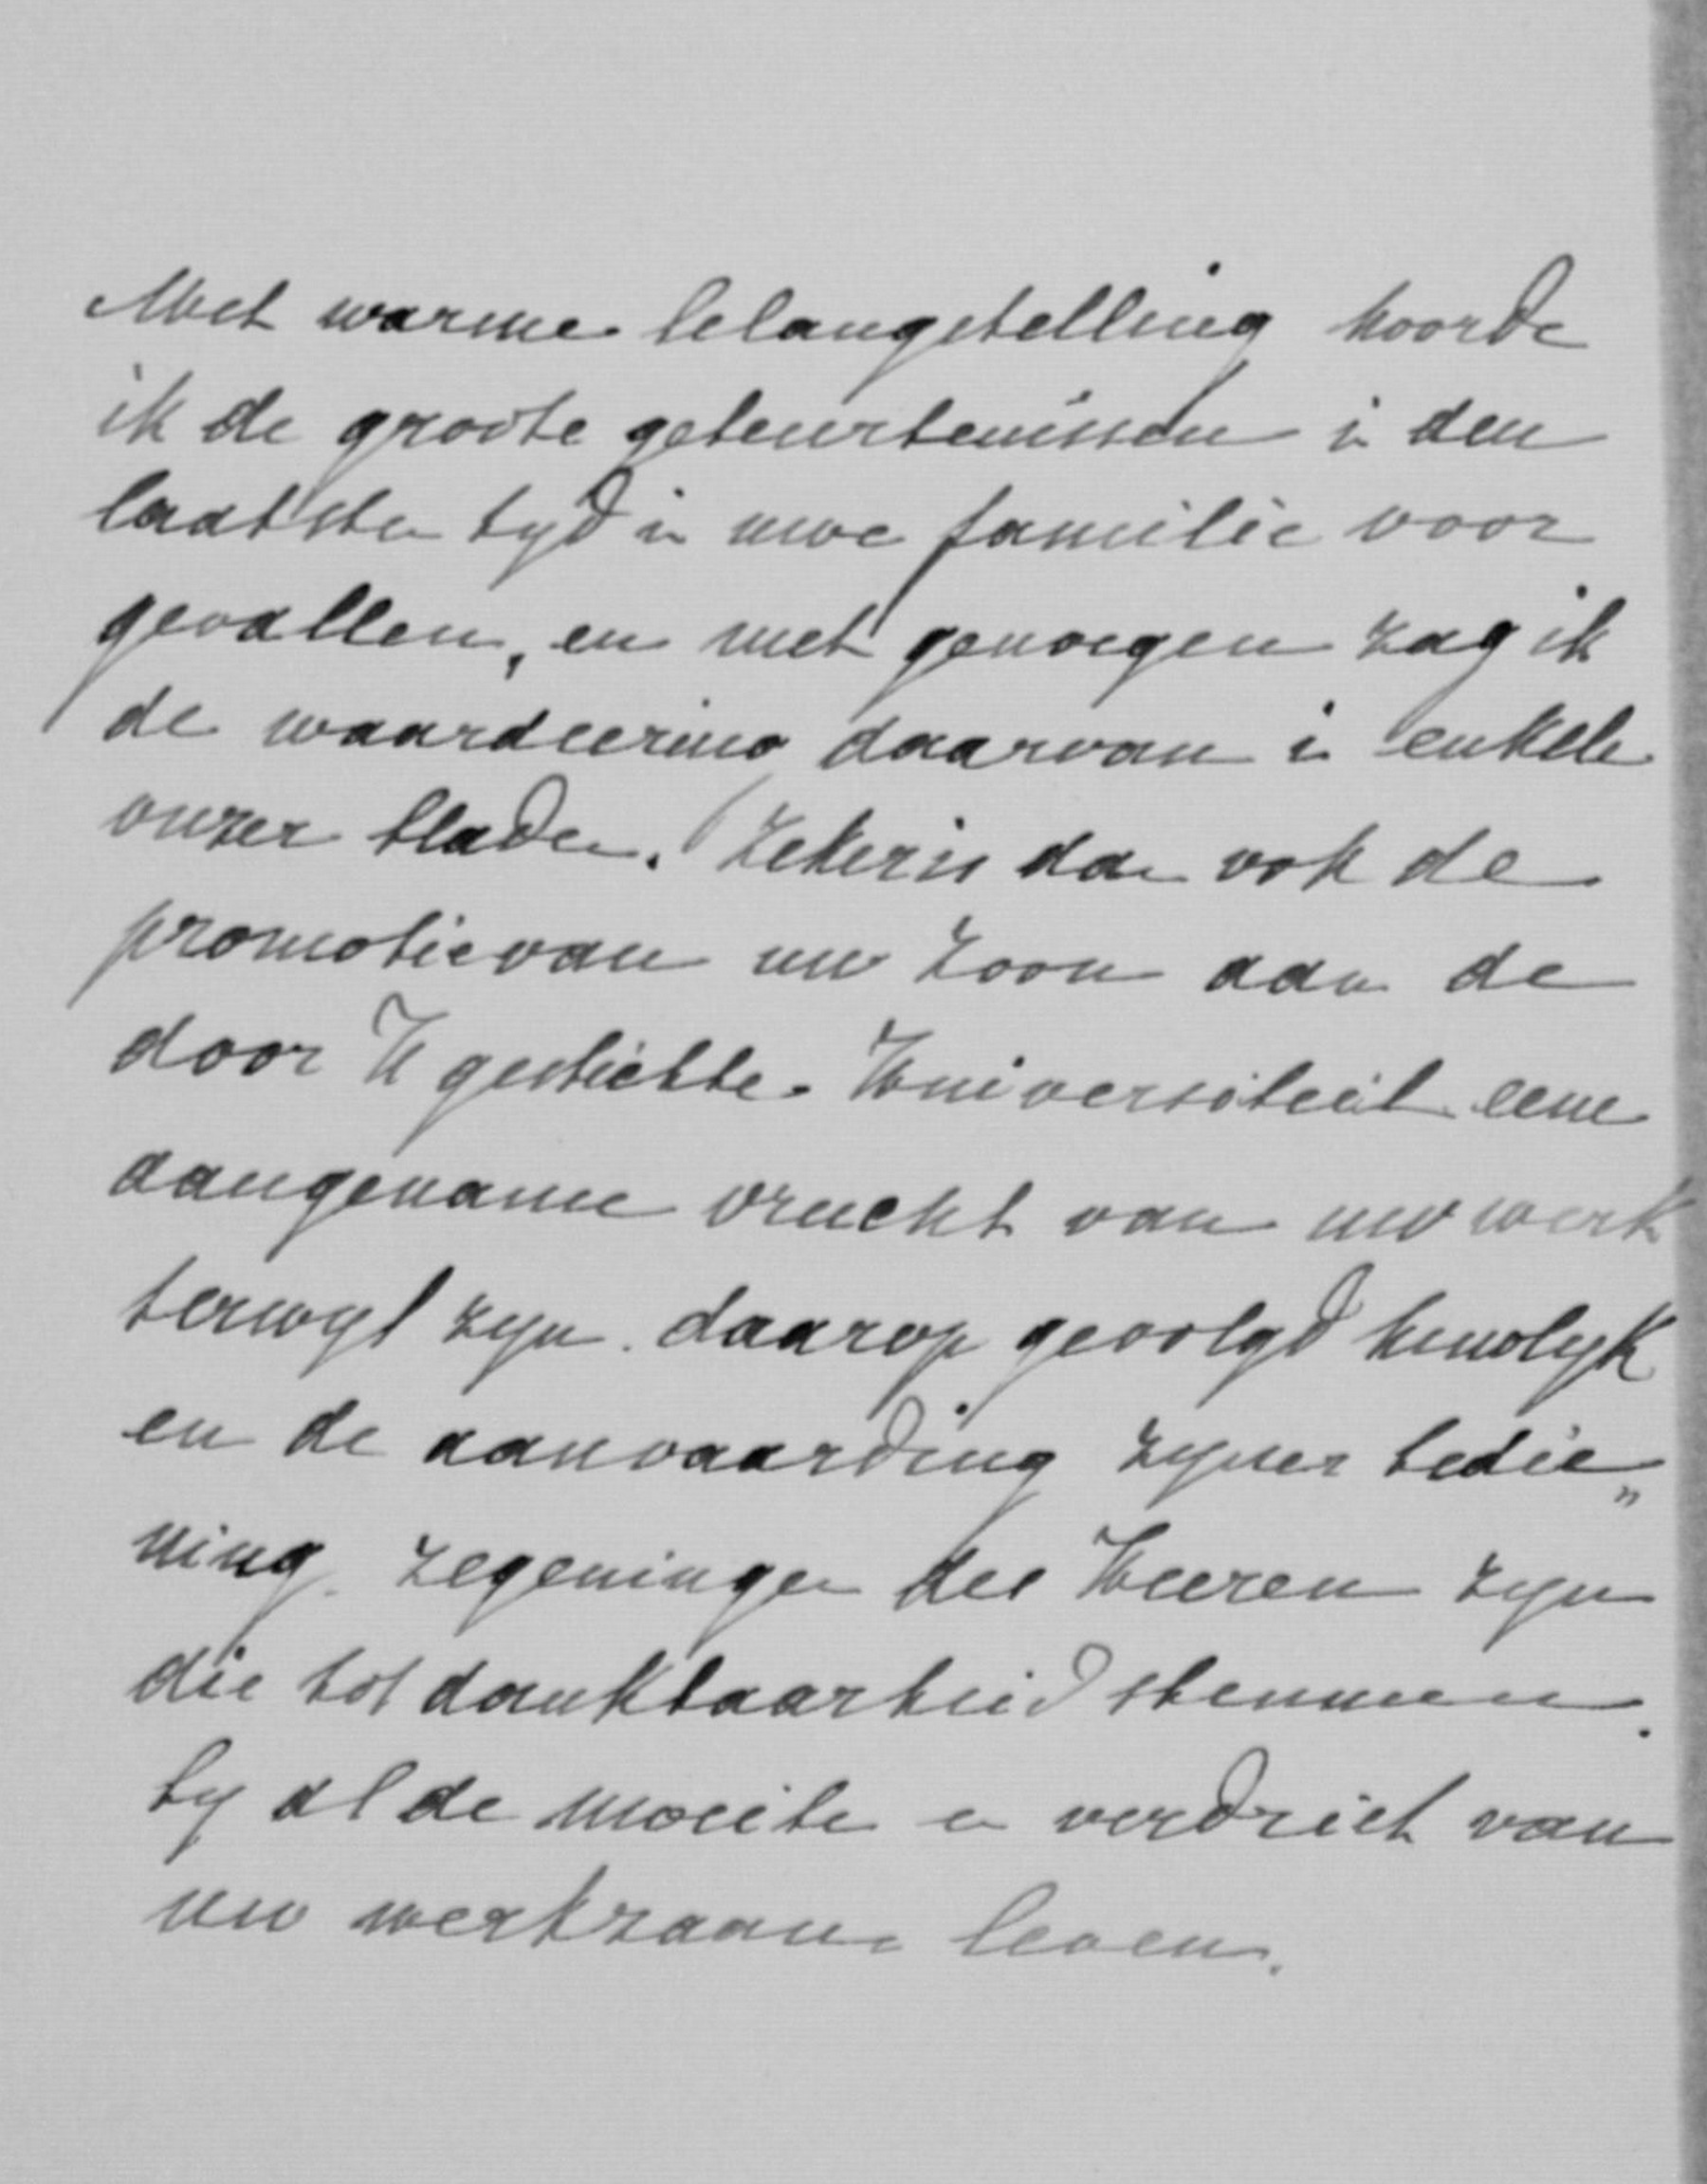 Met warme belangstelling hoorde
ik de groote gebeurtenissen in den
laatsten tyd in uwe familie voor
gevallen, en met genoegen zag ik
de waardeering daarvan in enkele
onzer bladen. Zeker is dan ook de
promotie van uw zoon aan de
door U gestichte Universiteit eene
aangename vrucht van uw werk
terwyl zyn daarop gevolgd huwlyk
en de aanvaarding zyner bedie„
ning zegeningen des Heeren zyn
die tot dankbaarheid stemmen.
by al de moeite en verdriet van
uw werkzaam leven.